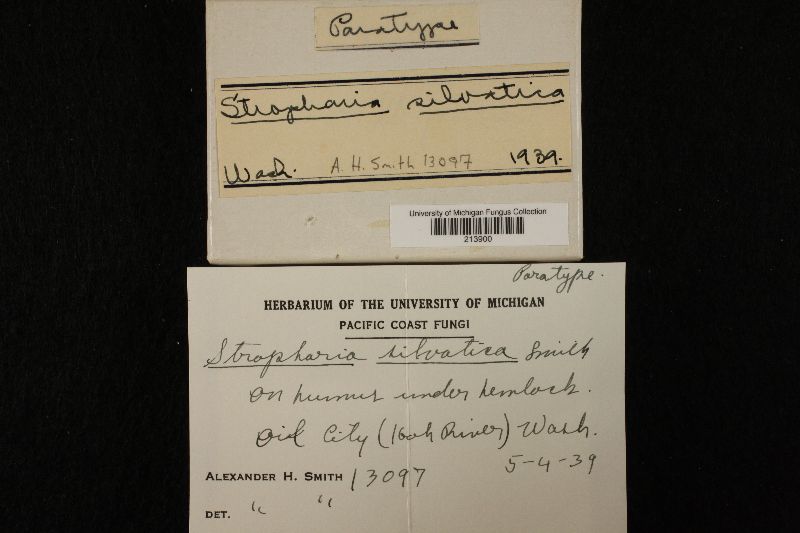 Paratype
Stropharia silvatica
Wash. A. H. Smith 13097 1939.
University of Michigan Fungus Collection
213900
Paratype.
HERBARIUM OF THE UNIVERSITY OF MICHIGAN
PACIFIC COAST FUNGI
Stropharia silvatica Smith
on humus under hemlock.
Oil City (Hoh River) Wash.
5-4-39
ALEXANDER H. SMITH 13097
DET. " "